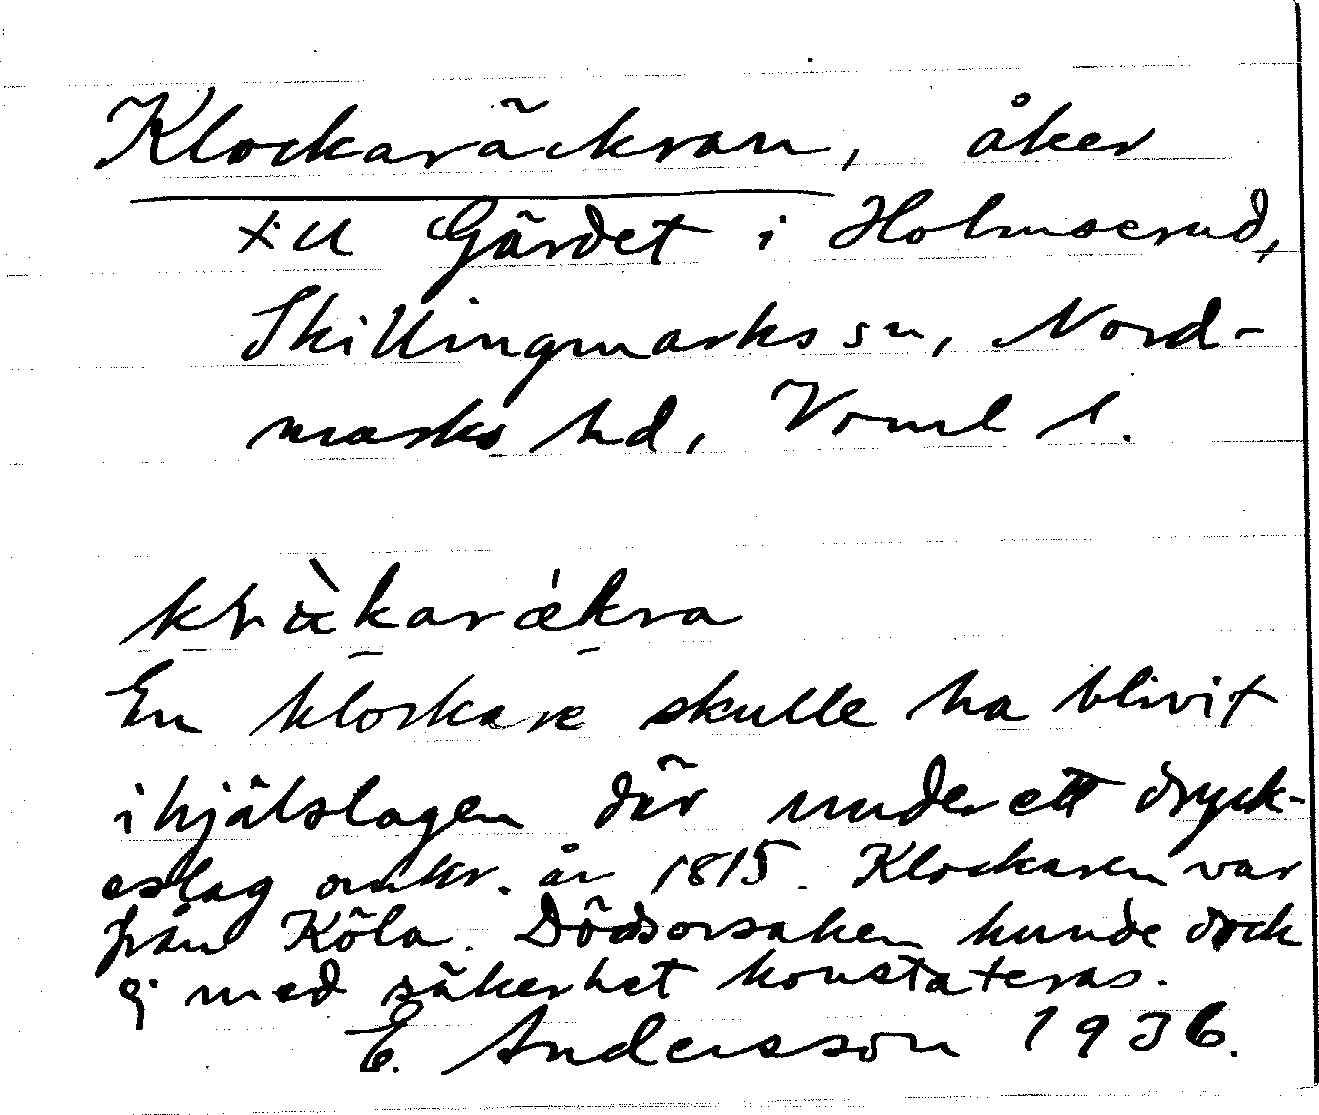 Klockaråckran, åker
till Gärdet i Holmserud,
Skillingmarks sn, Nord-
marks hd, Vrml l.
En klockare skulle ha blivit
ihjälslagen där under ett dryck-
eslag omkr. år 1815. Klockaren var
från Köla. Dödsorsaken kunde dock
ej med säkerhet konstateras.
E. Andersson 1936.